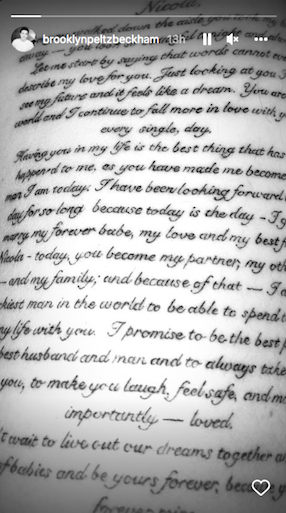 brooklynpeltzbeckham 13h
Nicola,
walked down the aisle
away — you
Let me start by saying that words cannot
describe my love for you. Just looking at you
see my future and it feels like a dream. You are
world and I continue to fall more in love with
every single, day.
Having you in my life is the best thing that has
happen'd to me, as you have made me become
man I am today. I have been looking forward
day for so long because today is the day - I
marry my forever babe, my love and my best
Nicola - today, you become my partner, my
- and my family; and because of that — I
man in the world to be able to spend
life with you. I promise to be the best
best husband and man and to always take
you, to make you laugh, feel safe, and
importantly — loved.
wait to live out our dreams together
of babies and be yours forever,
forever mine